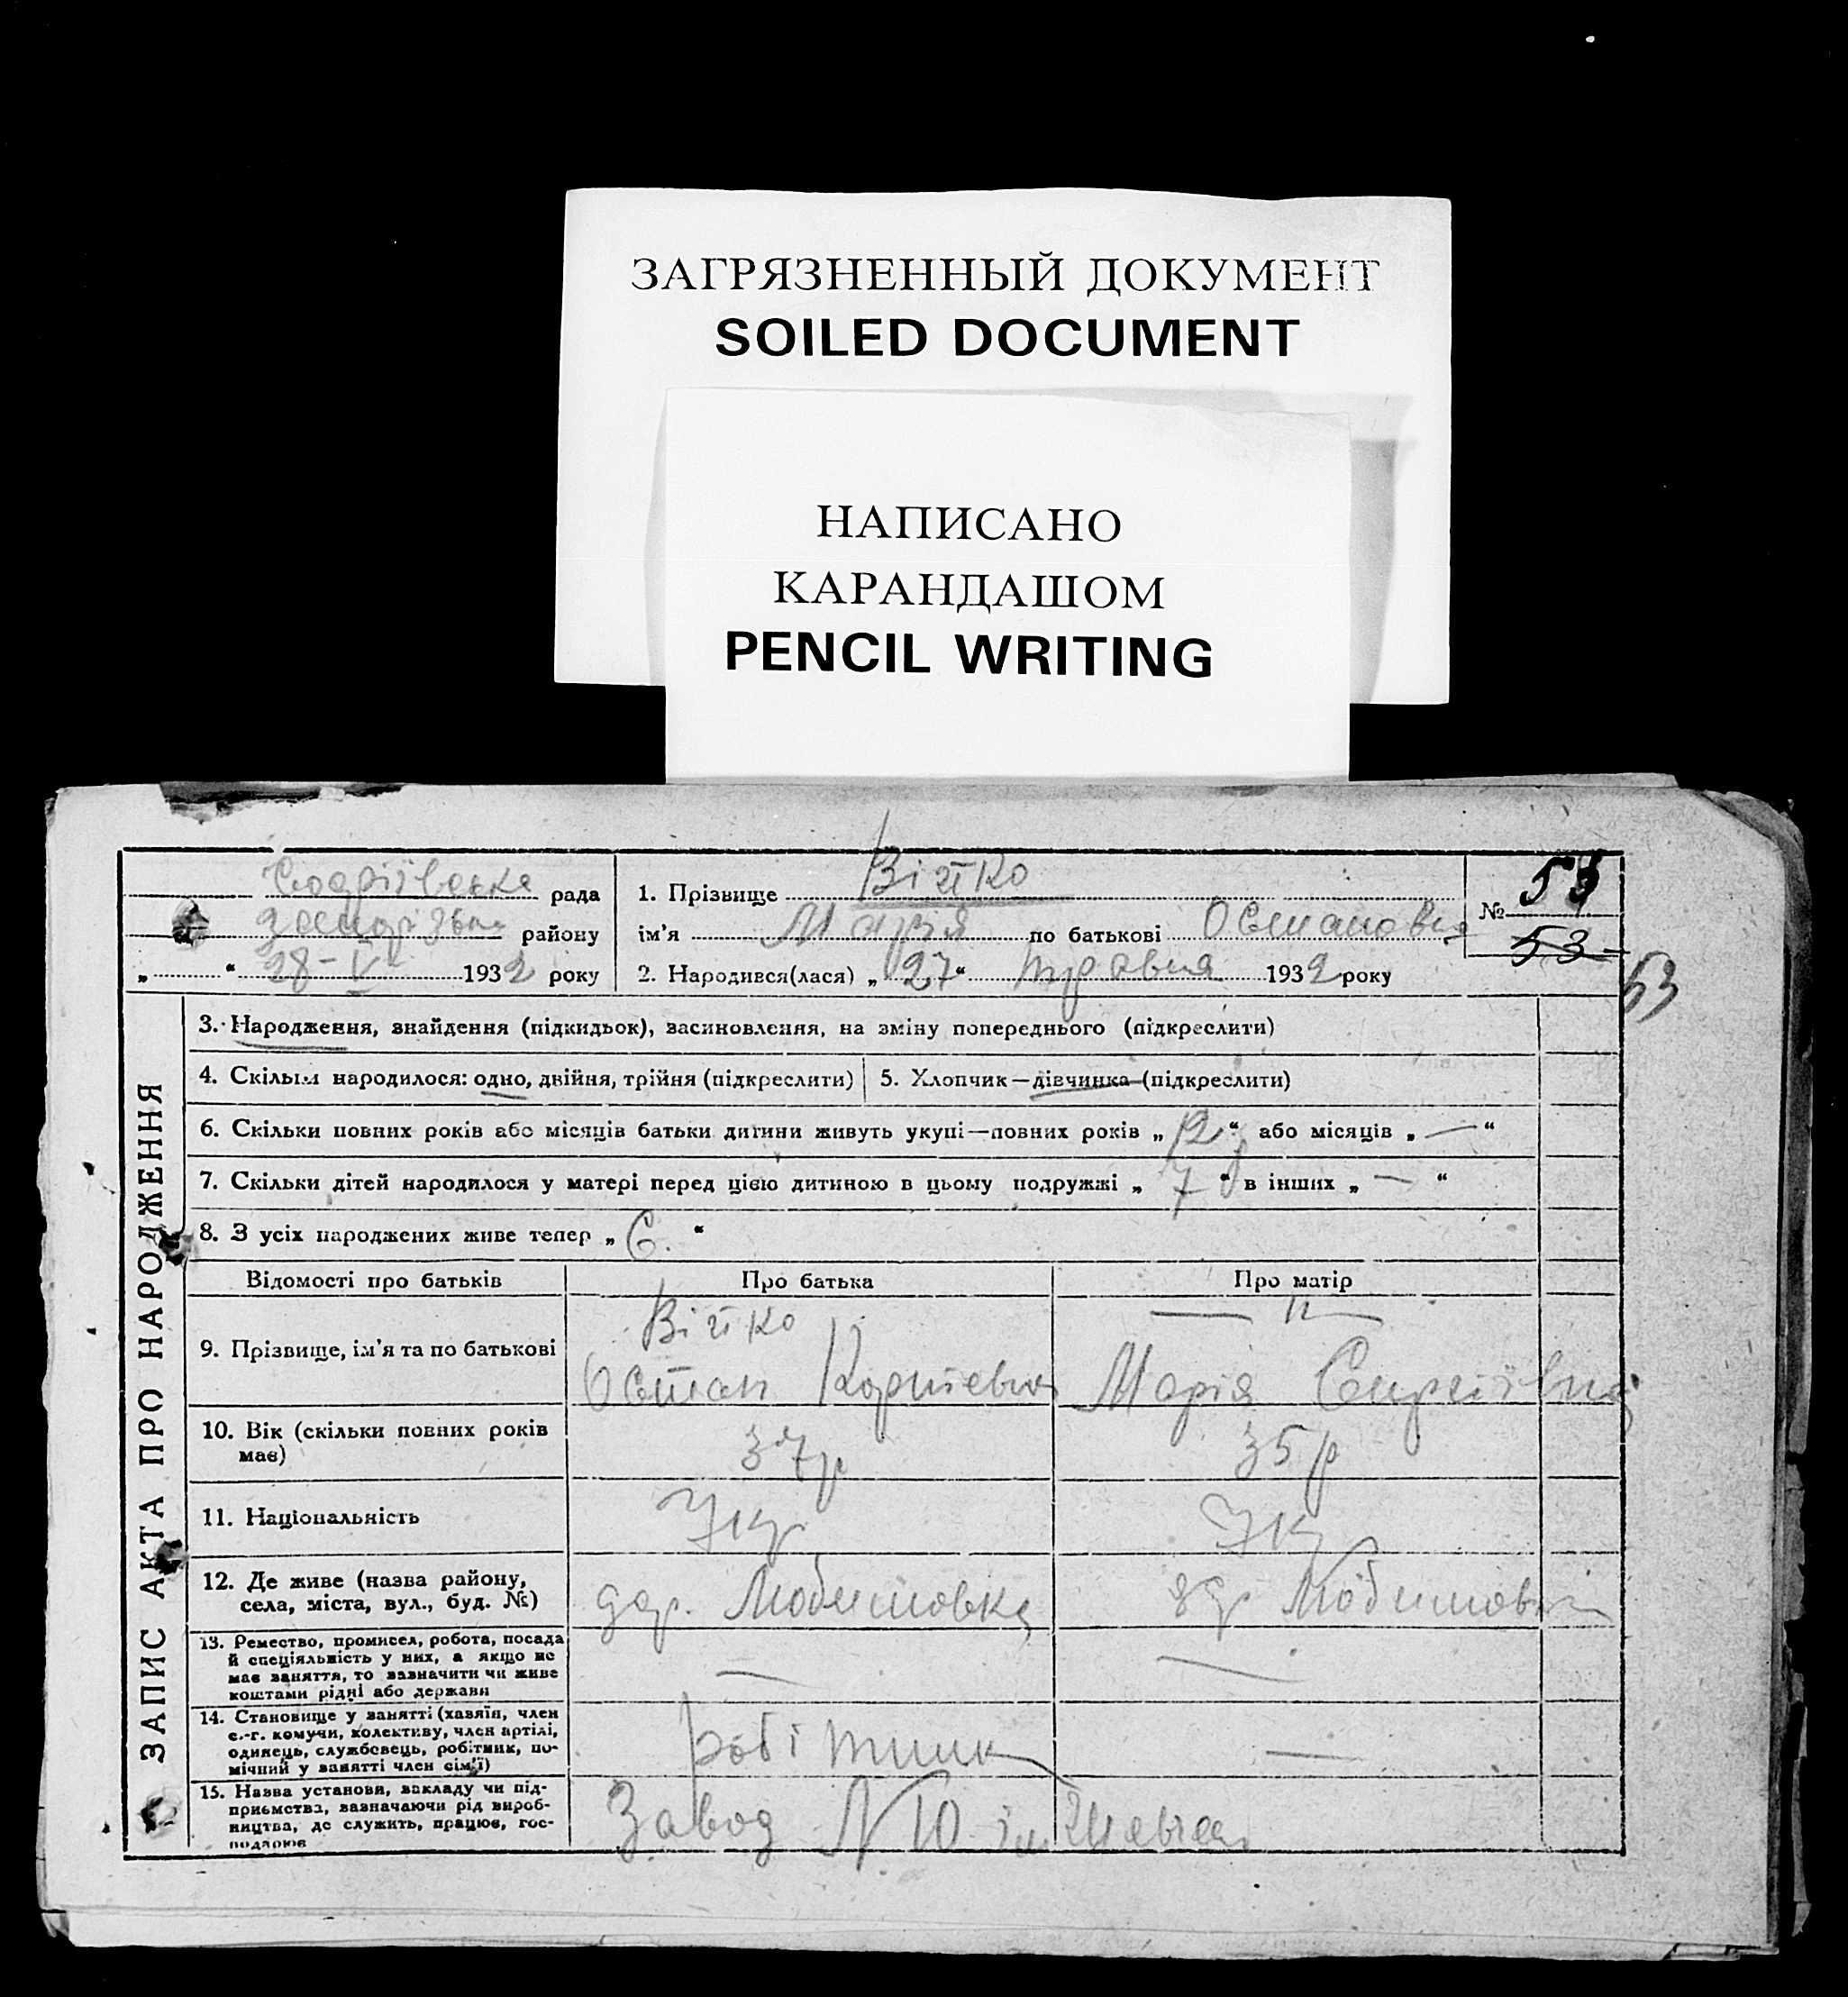 ЗАГРЯЗНЕННЫЙ ДОКУМЕНТ
SOILED DOCUMENT
НАПИСАНО
КАРАНДАШОМ
PENCIL WRITING
рада
району
„ “ 28-V 1932 року
1. Прізвище Війко
ім'я Марія по батькові Остаповна
2. Народився(лася) „27“ травня 1932 року
№ 54
53
53
ЗАПИС АКТА ПРО НАРОДЖЕННЯ
3. Народження, знайдення (підкидьок), засиновлення, на зміну попереднього (підкреслити)
4. Скільки народилося: одно, двійня, трійня (підкреслити)
5. Хлопчик—дівчинка (підкреслити)
6. Скільки повних років або місяців батьки дитини живуть укупі—повних років „12“ або місяців „—“
7. Скільки дітей народилося у матері перед цією дитиною в цьому подружжі „7“ в інших „—“
8. З усіх народжених живе тепер „6.“
Відомості про батьків Про батька Про матір
9. Прізвище, ім'я та по батькові
Війко
Остап Корнієвич
— „ —
Марія Сергіївна
10. Вік (скільки повних років
має)
37р 35р
11. Національність Укр. Укр
12. Де живе (назва району,
села, міста, вул., буд. №)
дер. Любимовка
др Любимовка
13. Ремество, промисел, робота, посада
й спеціяльність у них, а якщо не
має заняття, то зазначити чи живе
коштами рідні або держави
— —
14. Становище у занятті (хазяїн, член
с.-г. комуни, колективу, член артілі,
одинець, службовець, робітник, по-
мічний у занятті член сім'ї)
робітник —
15. Назва установи, закладу чи під-
приємства, зазначаючи рід вироб-
ництва, де служить, працює, гос-
подарює
Завод N 10 ім.